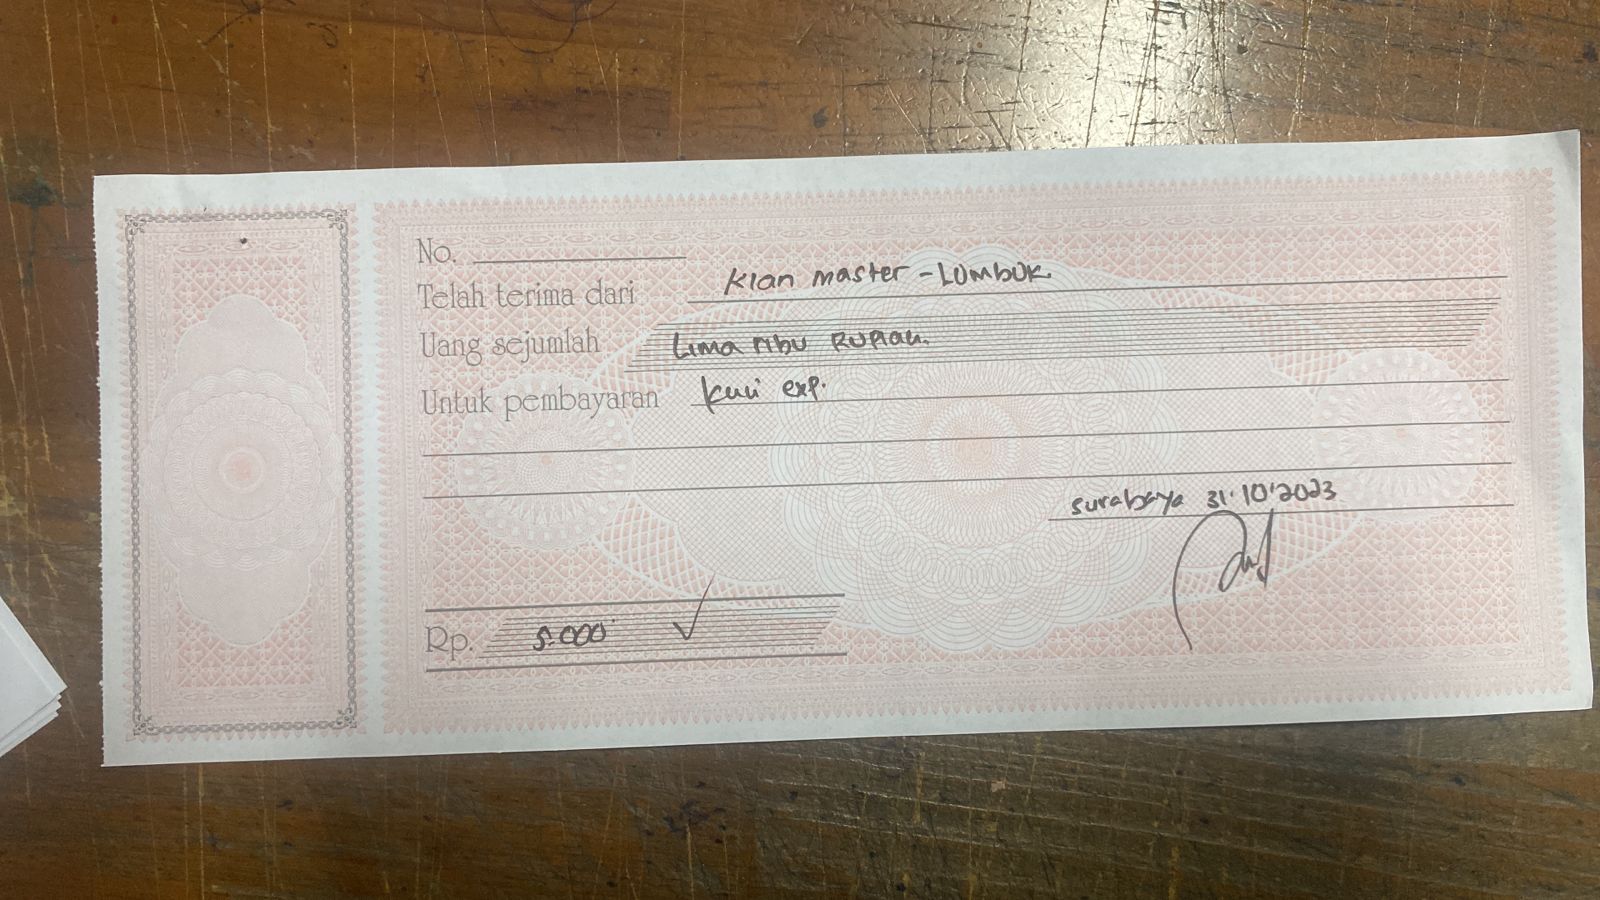 No.
Telah terima dari Klan master - Lombok
Uang sejumlah Lima ribu Rupiah.
Untuk pembayaran kuli exp.
surabaya 31·10'2023
Rp. 5.000